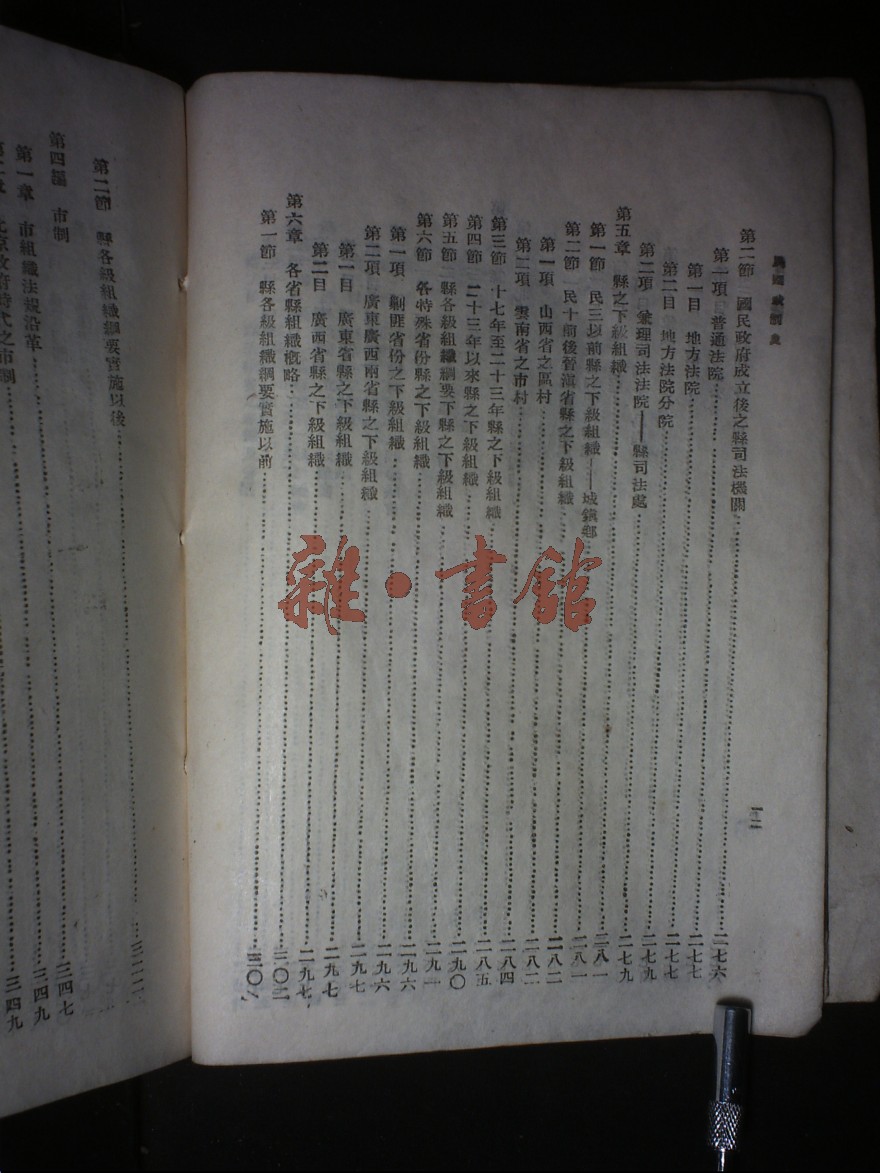 民國政制史
第二節 國民政府成立後之縣司法機關……二七六
第一項 普通法院……二七七
第一目 地方法院……二七七
第二目 地方法院分院……二七七
第二項 兼理司法法院——縣司法處……二七九
第五章 縣之下級組織……二七九
第一節 民三以前縣之下級組織——城鎮鄉……二八一
第二節 民十前後晉滇省縣之下級組織……二八一
第一項 山西省之區村……二八二
第二項 雲南省之市村……二八二
第三節 十七年至二十三年縣之下級組織……二八四
第四節 二十三年以來縣之下級組織……二八五
第五節 縣各級組織綱要下縣之下級組織……二九〇
第六節 各特殊省份縣之下級組織……二九一
第一項 剿匪省份之下級組織……二九六
第二項 廣東廣西兩省縣之下級組織……二九六
第一目 廣東省縣之下級組織……二九七
第二目 廣西省縣之下級組織……二九七
第六章 各省縣組織概略……二九七
第一節 縣各級組織綱要實施以前……三〇二
一二
第二節 縣各級組織綱要實施以後
第四編 市制……三四七
第一章 市組織法規沿革……三四九
北京政府時代之市制……三四九
雜·書館